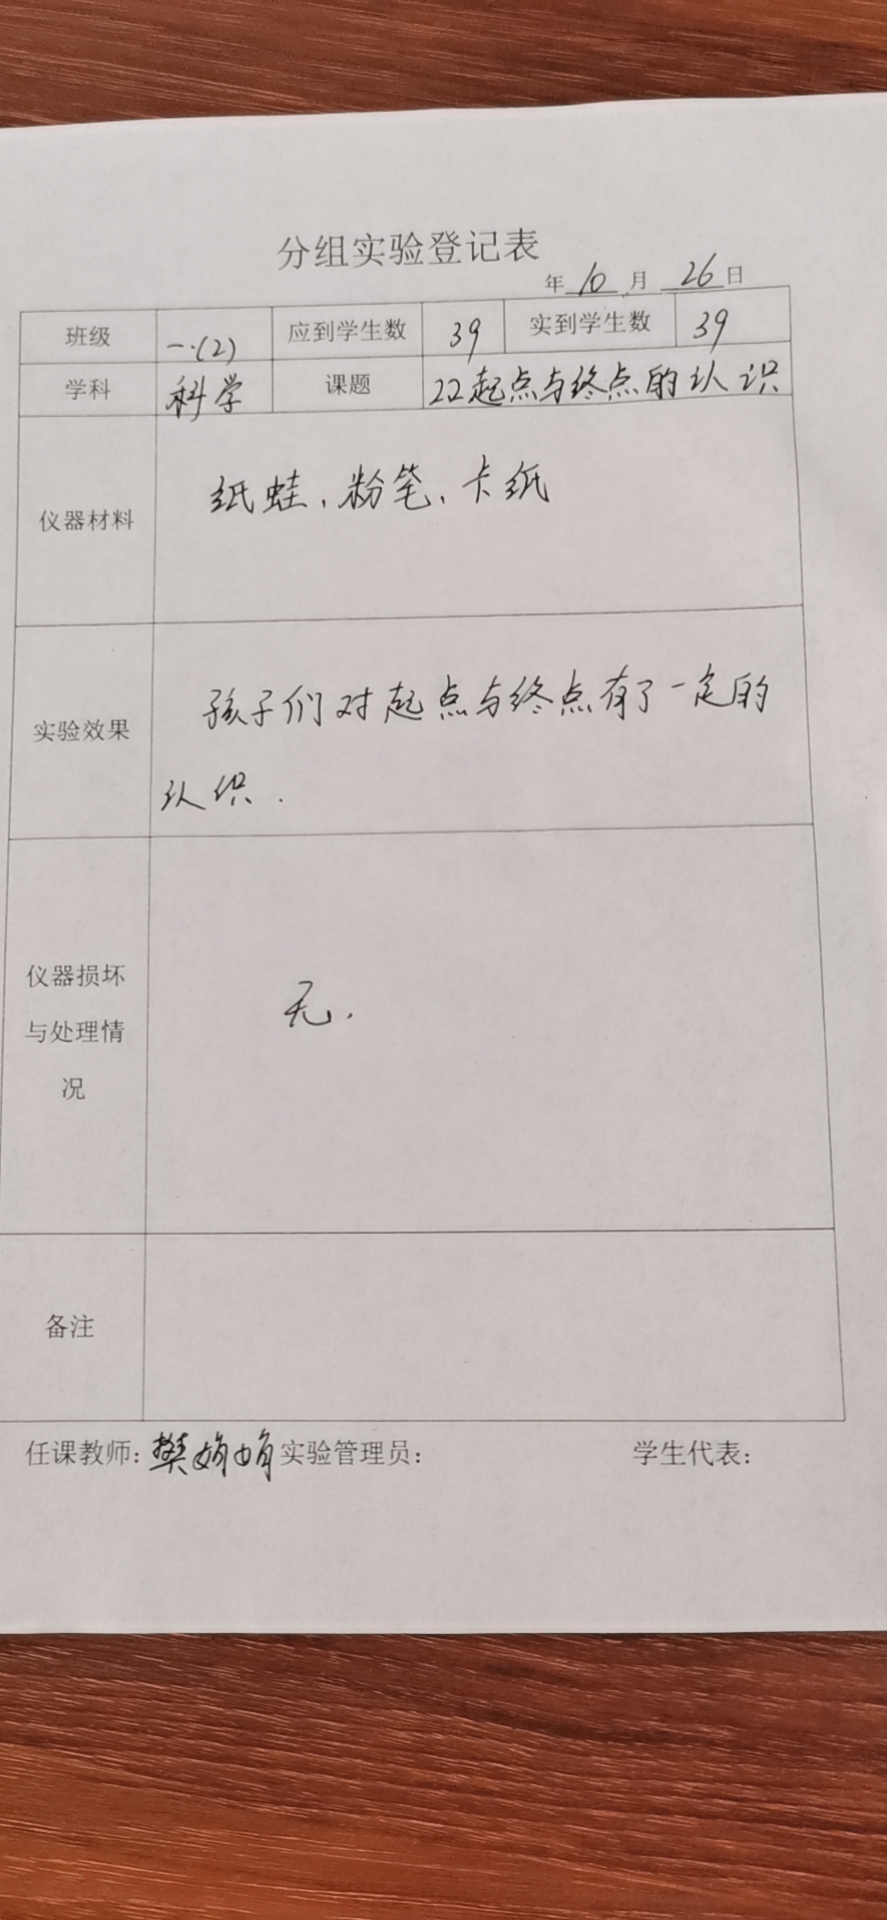 分组实验登记表
年 10 月 26 日
班级 一.(2) 应到学生数 39 实到学生数 39
学科 科学 课题 22起点与终点的认识
仪器材料 纸蛙、粉笔、卡纸
实验效果 孩子们对起点与终点有了一定的
认识.
仪器损坏
与处理情
况
无.
备注
任课教师:樊娟娟 实验管理员: 学生代表: